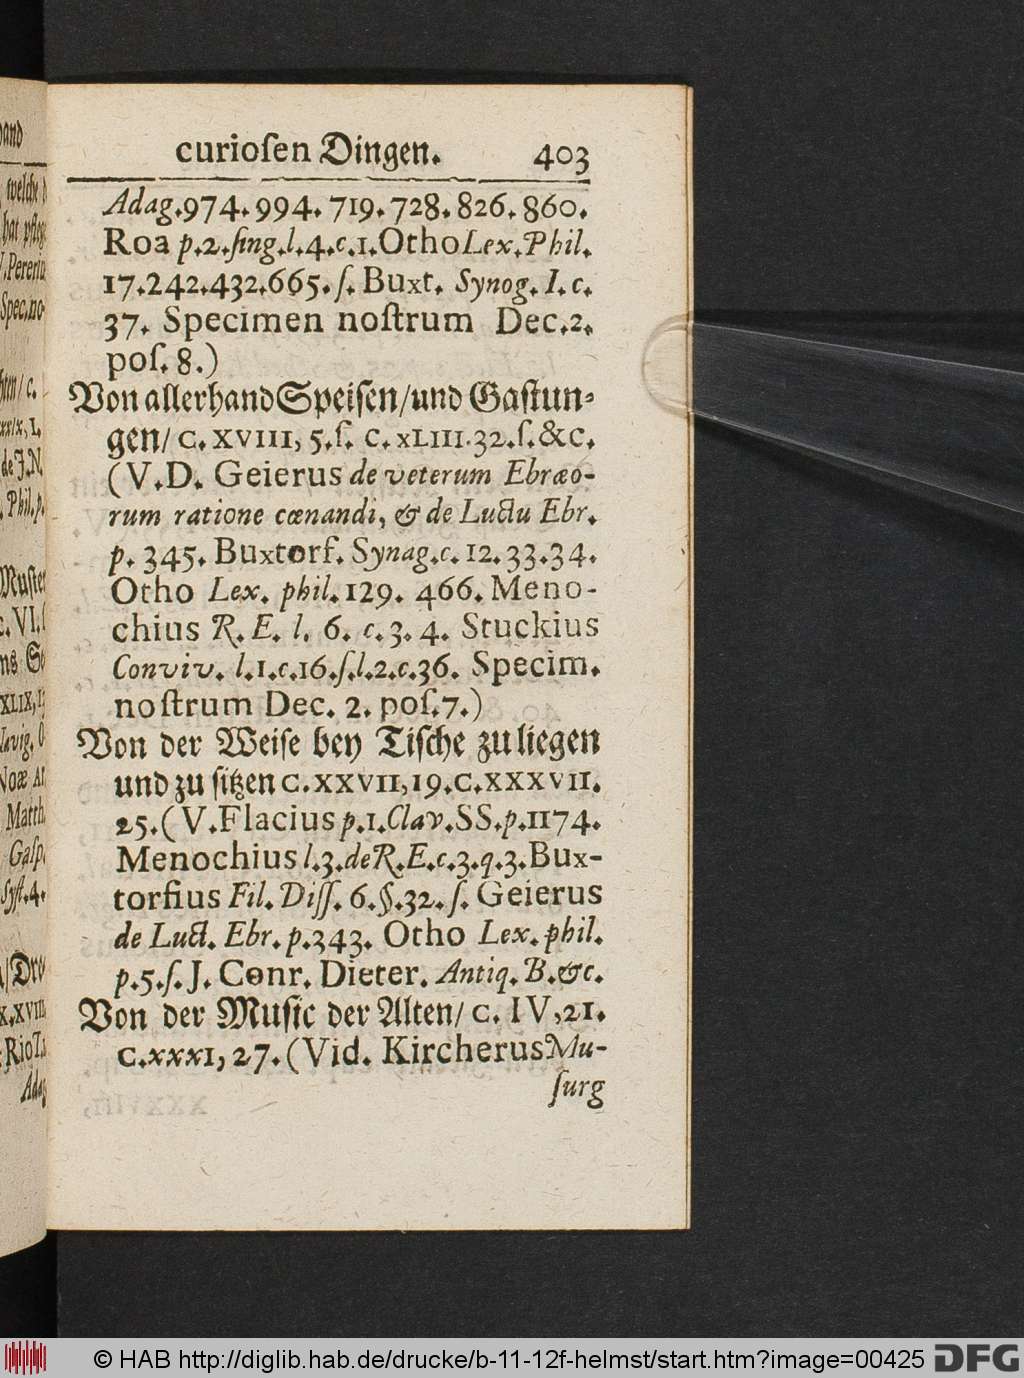 curioſen Dingen. 403
Adag.974.994.719.728.826.860.
Roa p.2.ſing.l.4.c.1.Otho Lex.Phil.
17.242.432.665.ſ. Buxt. Synog.I.c.
37. Specimen noſtrum Dec.2.
poſ.8.)
Von allerhand Speiſen/und Gaſtun⸗
gen/ c. XVIII, 5.ſ. C. XLIII.32.ſ.&c.
(V.D. Geierus de veterum Ebræo-
rum ratione cœnandi, & de Luctu Ebr.
p. 345. Buxtorf. Synag.c.12.33.34.
Otho Lex. phil.129. 466. Meno-
chius R.E. l. 6. c.3.4. Stuckius
Conviv. l.1.c.16.ſ.l.2.c.36. Specim.
noſtrum Dec. 2. poſ.7.)
Von der Weiſe bey Tiſche zu liegen
und zu ſitzen C.XXVII,19.C.XXXVII.
25.(V.Flacius p.1.Clav.SS.p.1174.
Menochius l.3.de R.E.c.3.q.3.Bux-
torfius Fil. Diſſ. 6.§.32.ſ. Geierus
de Luct. Ebr. p.343. Otho Lex.phil.
p.5.ſ.J. Conr. Dieter. Antiq.B.&c.
Von der Muſic der Alten/ c. IV,21.
C.XXXI, 27. (Vid. Kircherus Mu-
ſurg
© HAB http://diglib.hab.de/drucke/b-11-12f-helmst/start.htm?image=00425 DFG